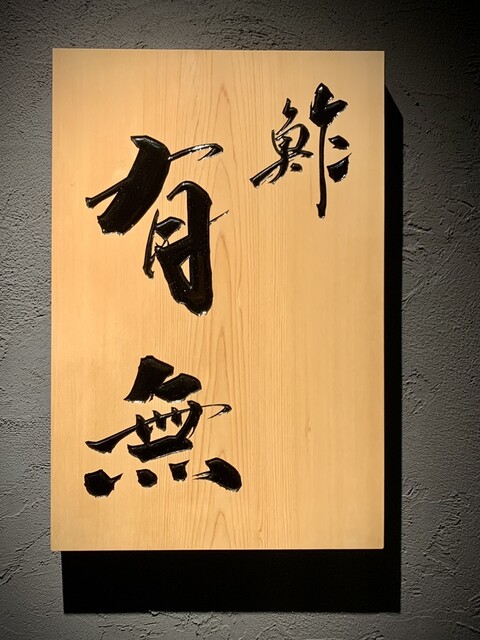 鮓
有無